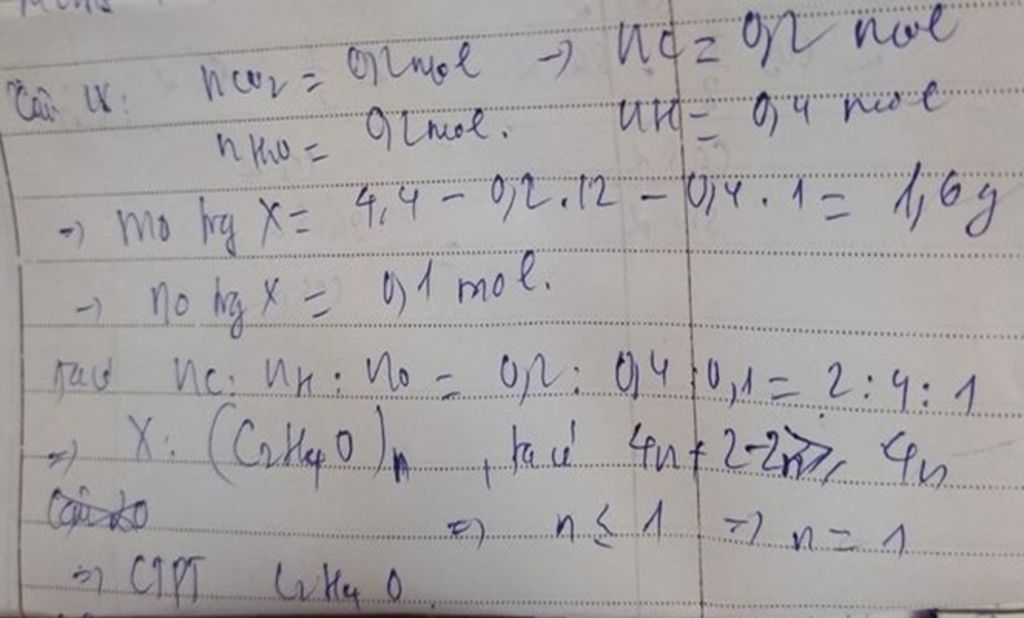 nCO2 = 0,2 mol → nC = 0,2 mol
nH2O = 0,2 mol. nH = 0,4 mol
→ mO trg X = 4,4 - 0,2.12 - 0,4.1 = 1,6g
→ nO trg X = 0,1 mol.
ta có nC : nH : nO = 0,2 : 0,4 : 0,1 = 2 : 4 : 1
=> X : (C2H4O)n , ta có 4n + 2 - 2n ≥ 4n
=> n ≤ 1 => n = 1
=> CTPT C2H4O